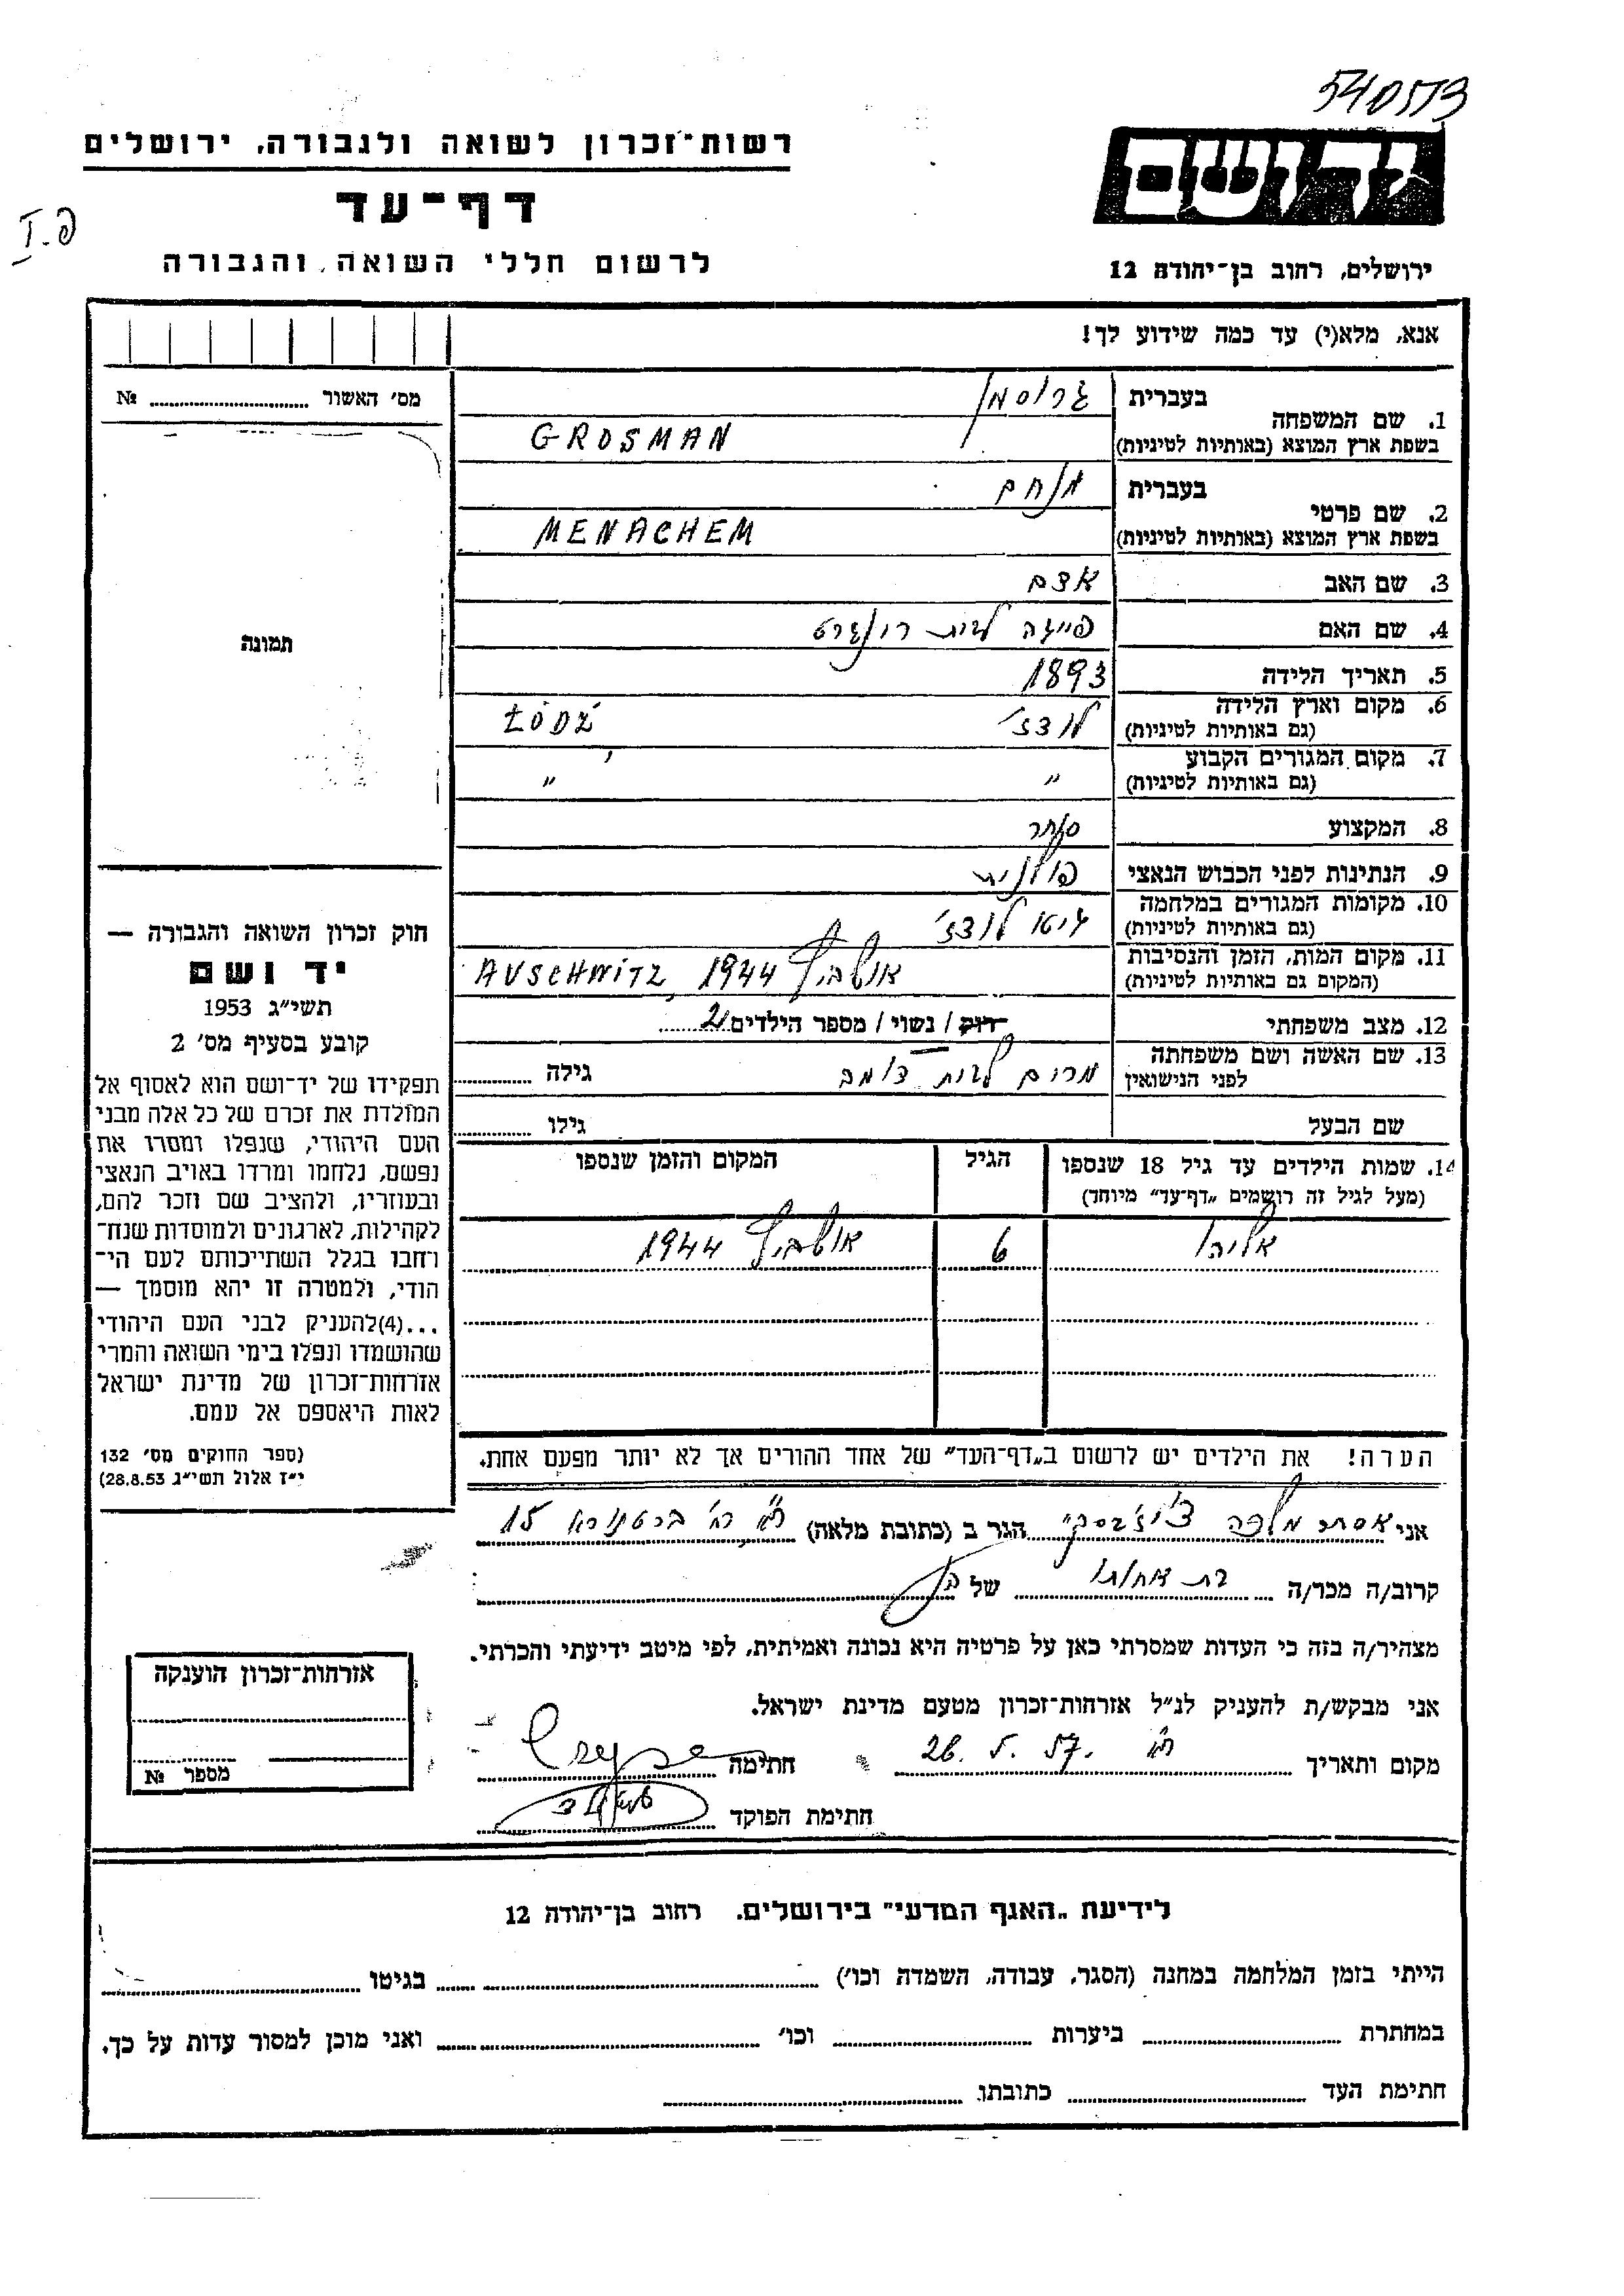 540573
רשות־זכרון לשואה ולגבורה, ירושלים
יד ושם
דף־עד
פ.I
לרשום חללי השואה והגבורה
ירושלים, רחוב בן־יהודה 12
אנא, מלא(י) עד כמה שידוע לך!
מס׳ האשור № 
1. שם המשפחה
בעברית גרוסמן
בשפת ארץ המוצא (באותיות לטיניות) GROSMAN
2. שם פרטי
בעברית מנחם
בשפת ארץ המוצא (באותיות לטיניות) MENACHEM
3. שם האב אדם
4. שם האם פייגה לבית
תמונה
5. תאריך הלידה 1893
6. מקום וארץ הלידה (גם באותיות לטיניות) לודז׳ ŁÓDŹ
7. מקום המגורים הקבוע (גם באותיות לטיניות) " "
8. המקצוע סוחר
9. הנתינות לפני הכבוש הנאצי פולנית
10. מקומות המגורים במלחמה (גם באותיות לטיניות) גיטו לודז׳
11. מקום המות, הזמן והנסיבות (המקום גם באותיות לטיניות) אושביץ 1944 AUSCHWITZ,
12. מצב משפחתי רוק / נשוי / מספר הילדים 2
13. שם האשה ושם משפחתה לפני הנישואין מרים לבית גילה
שם הבעל גילו
14. שמות הילדים עד גיל 18 שנספו
(מעל לגיל זה רושמים „דף־עד” מיוחד)
הגיל
המקום והזמן שנספו
אליהו 6 אושביץ 1944
חוק זכרון השואה והגבורה —
יד ושם
תשי״ג 1953
קובע בסעיף מס׳ 2
תפקידו של יד־ושם הוא לאסוף אל
המולדת את זכרם של כל אלה מבני
העם היהודי, שנפלו ומסרו את
נפשם, נלחמו ומרדו באויב הנאצי
ובעוזריו, ולהציב שם וזכר להם,
לקהילות, לארגונים ולמוסדות שנח־
רחבו בגלל השתייכותם לעם הי־
הודי, ולמטרה זו יהא מוסמך —
...(4)להעניק לבני העם היהודי
שהושמדו ונפלו בימי השואה והמרי
אזרחות־זכרון של מדינת ישראל
לאות היאספם אל עמם.
(ספר החוקים מס׳ 132
י״ז אלול תשי״ג 28.8.53)
הערה! את הילדים יש לרשום ב„דף־העד” של אחד ההורים אך לא יותר מפעם אחת.
אני אסתר מלכה הגר ב (כתובת מלאה) ת״א רח׳ ברטנורא 15
קרוב/ה מכר/ה בת אחותו של הנ״ל
מצהיר/ה בזה כי העדות שמסרתי כאן על פרטיה היא נכונה ואמיתית, לפי מיטב ידיעתי והכרתי.
אני מבקש/ת להעניק לנ״ל אזרחות־זכרון מטעם מדינת ישראל.
מקום ותאריך ת״א 26.5.57. חתימה
חתימת הפוקד
אזרחות־זכרון הוענקה
מספר №
לידיעת „האגף המדעי” בירושלים. רחוב בן־יהודה 12
הייתי בזמן המלחמה במחנה (הסגר, עבודה, השמדה וכו׳) בגיטו
במחתרת ביערות וכו׳ ואני מוכן למסור עדות על כך.
חתימת העד כתובתו